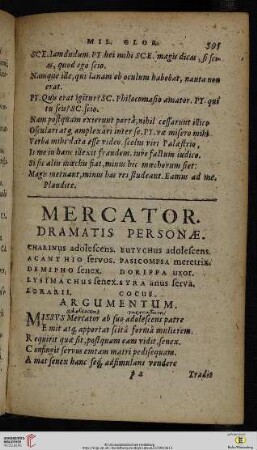 MIL. GLOR. 395
SCE. Iamdudum. PT. hei mihi SCE. magis dicas, si sci-
as, quod ego scio.
Namque ille, qui lanam ob oculum habebat, nauta non
erat.
PT. Quis erat igitur? SC. Philocomasio amator. PT. qui
tu scis? SC. scio.
Nam postquam exierunt portâ, nihil cessarunt ilico
Osculari atq. amplexari inter se. PT. væ misero mihi.
Verba mihi data esse video. scelus viri Palæstrio,
Is me in hanc illexit fraudem. iure factum iudico.
Si sic aliis mœchis fiat, minus hic mœchorum siet:
Magis metuant, minus has res studeant. Eamus ad me.
Plaudite.
MERCATOR.
DRAMATIS PERSONÆ.
CHARINUS adolescens. EUTYCHUS adolescens.
ACANTHIO servos. PASICOMPSA meretrix.
DEMIPHO senex. DORIPPA uxor.
LYSIMACHUS senex. SYRA anus serva.
LORARII. COCUS.
ARGUMENTUM.
MISSUS Mercator ab suo adolescens patre
Emit atq. apportat scitâ formâ mulierem.
Requirit quæ sit, postquam eam vidit, senex.
Confingit servus emtam matri pedisequam.
Amat senex hanc seq. adsimulans vendere
Tradit